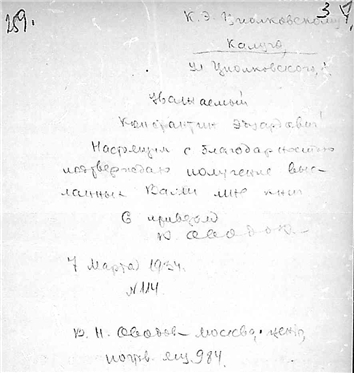 259.
3
К. Э. Циолковскому
Калуга,
ул Циолковского,
Уважаемый
Константин Эдуардович!
Настоящим с благодарностью
подтверждаю получение выс-
ланных Вами мне книг
С приветом
7 Марта 1934.
N 114.
Москва, центр,
почтов. ящ. 984.